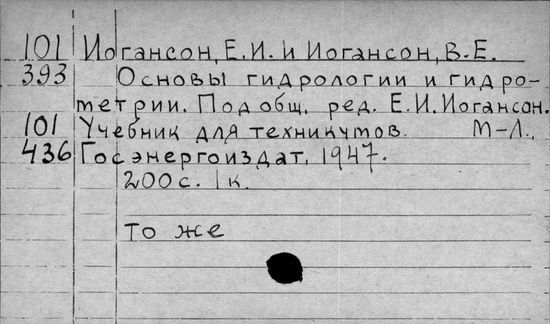 101 Иогансон, Е.И. и Иогансон, В.Е.
393 Основы гидрологии и гидро-
метрии. Под общ. ред. Е.И. Иогансон.
101 Учебник для техникумов. М-Л.,
436 Госэнергоиздат, 1947.
200 с. 1 к.
то же